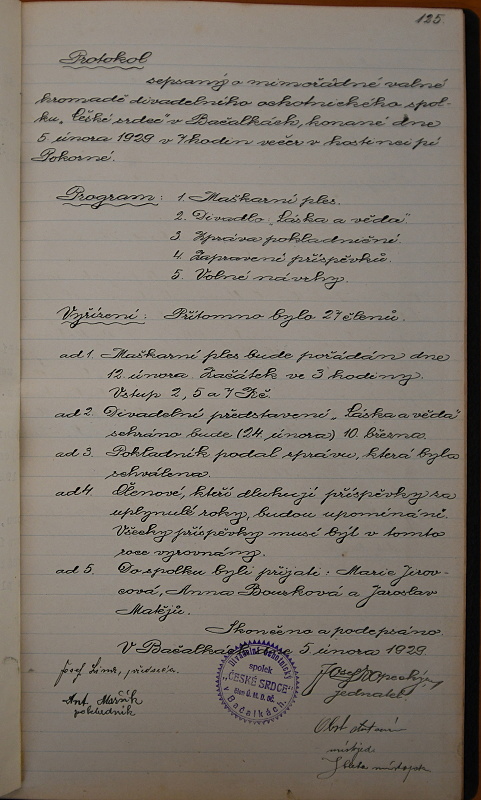 125.
Protokol
sepsaný o mimořádné valné
hromadě divadelního ochotnického spol-
ku „České srdce" v Bačalkách, konané dne
5 února 1929 v 7 hodin večer v hostinci pí
Pokorné.
Program: 1. Maškarní ples.
2. Divadlo „Láska a věda".
3 Zpráva pokladniční.
4. Zapravení příspěvků.
5. Volné návrhy.
Vyřízení: Přítomno bylo 27 členů.
ad 1. Maškarní ples bude pořádán dne
12. února. Začátek ve 3 hodiny.
Vstup 2, 5 a 7 Kč.
ad 2. Divadelní představení „Láska a věda"
sehráno bude (24. února) 10. března.
ad 3. Pokladník podal správu, která byla
schválena.
ad 4. Členové, kteří dluhují příspěvky za
uplynulé roky, budou upomínáni.
Všechy příspěvky musí býti v tomto
roce vyrovnány.
ad 5. Do spolku byli přijati: Marie Jírov-
cová, Anna Bourková a Jaroslav
Matějů.
Skončeno a podepsáno.
V Bačalkách 5 února 1929.
Divadelní ochotnický
spolek
„ČESKÉ SRDCE"
v Bačalkách.
Josef předseda.
Josef Kopecký
jednatel
Ant. Mašík
pokladník